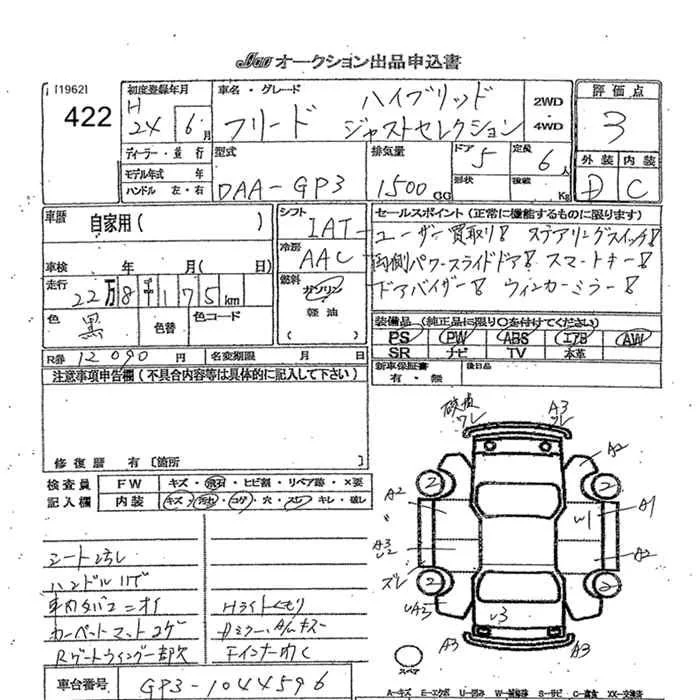 オークション出品申込書
[1962]
422
初度登録年月
H
24 6月
車名・グレード
ハイブリッド
フリード ジャストセレクション
2WD
・
4WD
評価点
3
外装 内装
D C
ディーラー・並行
モデル年式 年
ハンドル 左・右
型式
DAA-GP3
排気量
1500 CC
ドア 5
定員 6人
形状
積載 Kg
車歴
自家用( )
車検 年 月( 日)
走行
22万8千175km
色 黒
色替
色コード
R券 12090円
名変期限 月 日
シフト
IAT
冷房
AAC
燃料
ガソリン
・
軽油
( )
セールスポイント(正常に機能するものに限ります)
ユーザー買取り! ステアリングスイッチ!
両側パワースライドドア! スマートキー!
ドアバイザー! ウィンカーミラー!
装備品(純正品に限り○を付けてください)
PS PW ABS エアB AW
SR ナビ TV 本革
新車保証書
有・無
後日品
注意事項申告欄(不具合内容等は具体的に記入して下さい)
修復歴 有〔箇所 〕
検査員
記入欄
FW キズ・飛石・ヒビ割・リペア跡・×要
内装 キズ・汚れ・コゲ・穴・スレ・キレ・破レ
シート汚レ
ハンドルハゲ
車内タバコニオイ
カーペットマットコゲ
Rゲートウイング一部欠
Hライトくもり
Dミラー・A/Wキズ
車台番号 GP3-1044596
破損
ワレ
A3
ワレ
A2
2
2
A2
A1
W1
A3
U2
A2
ズレ
2
2
UA2
U3
A3
A3
スペア
A-キズ E-エクボ U-凹み W-補修跡 S-サビ C-腐食 XX-交換済